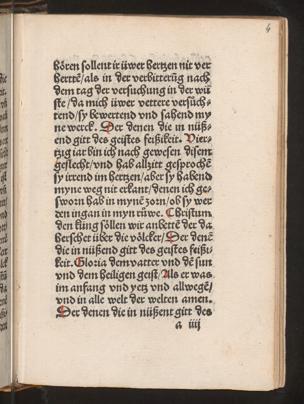 6
hören sollent ir üwer hertzen nit ver
herttē/als in der verbitterūg nach
dem tag der versuchung in der wü
ste/da mich üwer vettere versůch-
tend/sy bewertend vnd sahend my
ne werck. Der denen die in nüß-
end gitt des geistes feißikeit. Vier-
tzig iar bin ich nach gewesen disem
geslecht/vnd hab allzitt gesprochē
sy irrend im hertzen/aber sy habend
myne weg nit erkant/denen ich ge-
sworn hab in mynē zorn/ob sy wer
den ingan in myn růwe. Christum
den küng söllen wir anbettē der da
herschet über die völcker/Der denē
die in nüßend gitt des geistes feißi/
keit. Gloria dem vatter vnd dē sun
vnd dem heiligen geist/Als er was
im anfang vnd yetz vnd allwegē/
vnd in alle welt der welten amen.
Der denen die in nüßent gitt des
a iiij